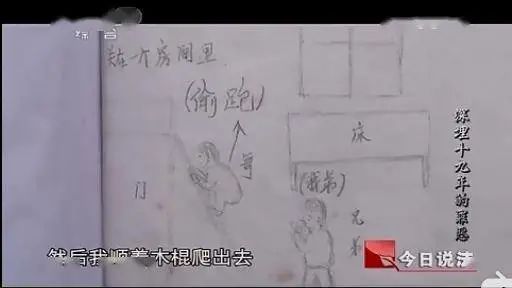 综合
关在一个房间里
(偷跑)
哥
门
床
(我弟)
兄弟
深埋十九年的罪恶
今日说法
然后我顺着木棍爬出去